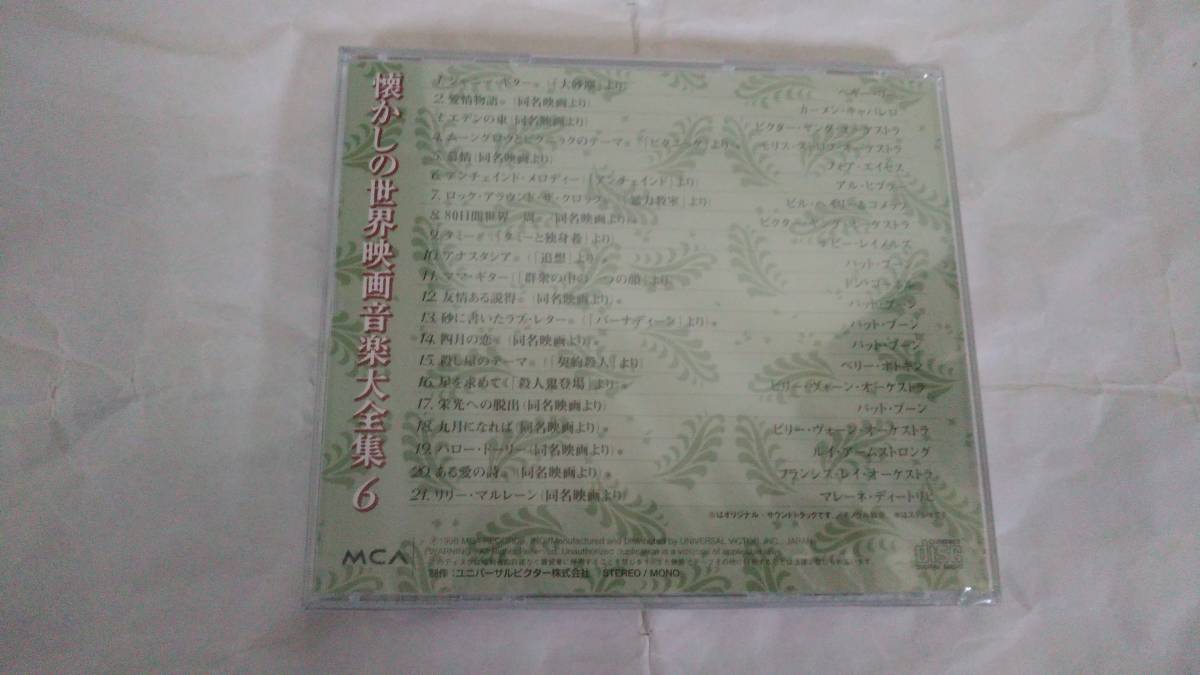 懐かしの世界映画音楽大全集 6
1. ジャニー・ギター 「大砂塵」より) ペギー・リー
2. 愛情物語 (同名映画より) カーメン・キャバレロ
3. エデンの東 (同名映画より) ビクター・ヤング・オーケストラ
4. ムーングロウとピクニックのテーマ 「ピクニック」より モリス・ストロフ・オーケストラ
5. 慕情 (同名映画より) フォア・エイセス
6. アンチェインド・メロディー (「アンチェインド」より) アル・ヒブラー
7. ロック・アラウンド・ザ・クロック 「暴力教室」より) ビル・ヘイリー&コメッツ
8. 80日間世界一周 (同名映画より) ビクター・ヤング・オーケストラ
9. タミー (「タミーと独身者」より) デビー・レイノルズ
10. アナスタシア (「追想」より) パット・ブーン
11. ママ・ギター (「群衆の中の一つの顔」より)
12. 友情ある説得 (同名映画より) パット・ブーン
13. 砂に書いたラブ・レター (「バーナディーン」より) パット・ブーン
14. 四月の恋 (同名映画より) パット・ブーン
15. 殺し屋のテーマ (「契約殺人」より) ペリー・ボトキン
16. 星を求めて (「殺人鬼登場」より) ビリー・ヴォーン・オーケストラ
17. 栄光への脱出 (同名映画より) パット・ブーン
18. 九月になれば (同名映画より) ビリー・ヴォーン・オーケストラ
19. ハロー・ドーリー (同名映画より) ルイ・アームストロング
20. ある愛の詩 (同名映画より) フランシス・レイ・オーケストラ
21. リリー・マルレーン (同名映画より) マレーネ・ディートリヒ
※はオリジナル・サウンドトラックです。
MCA
℗1998 MCA RECORDS, INC./Manufactured and Distributed by UNIVERSAL VICTOR, INC., JAPAN
WARNING: All Rights Reserved. Unauthorized duplication is a violation of applicable laws.
制作:ユニバーサルビクター株式会社 STEREO / MONO
COMPACT disc DIGITAL AUDIO